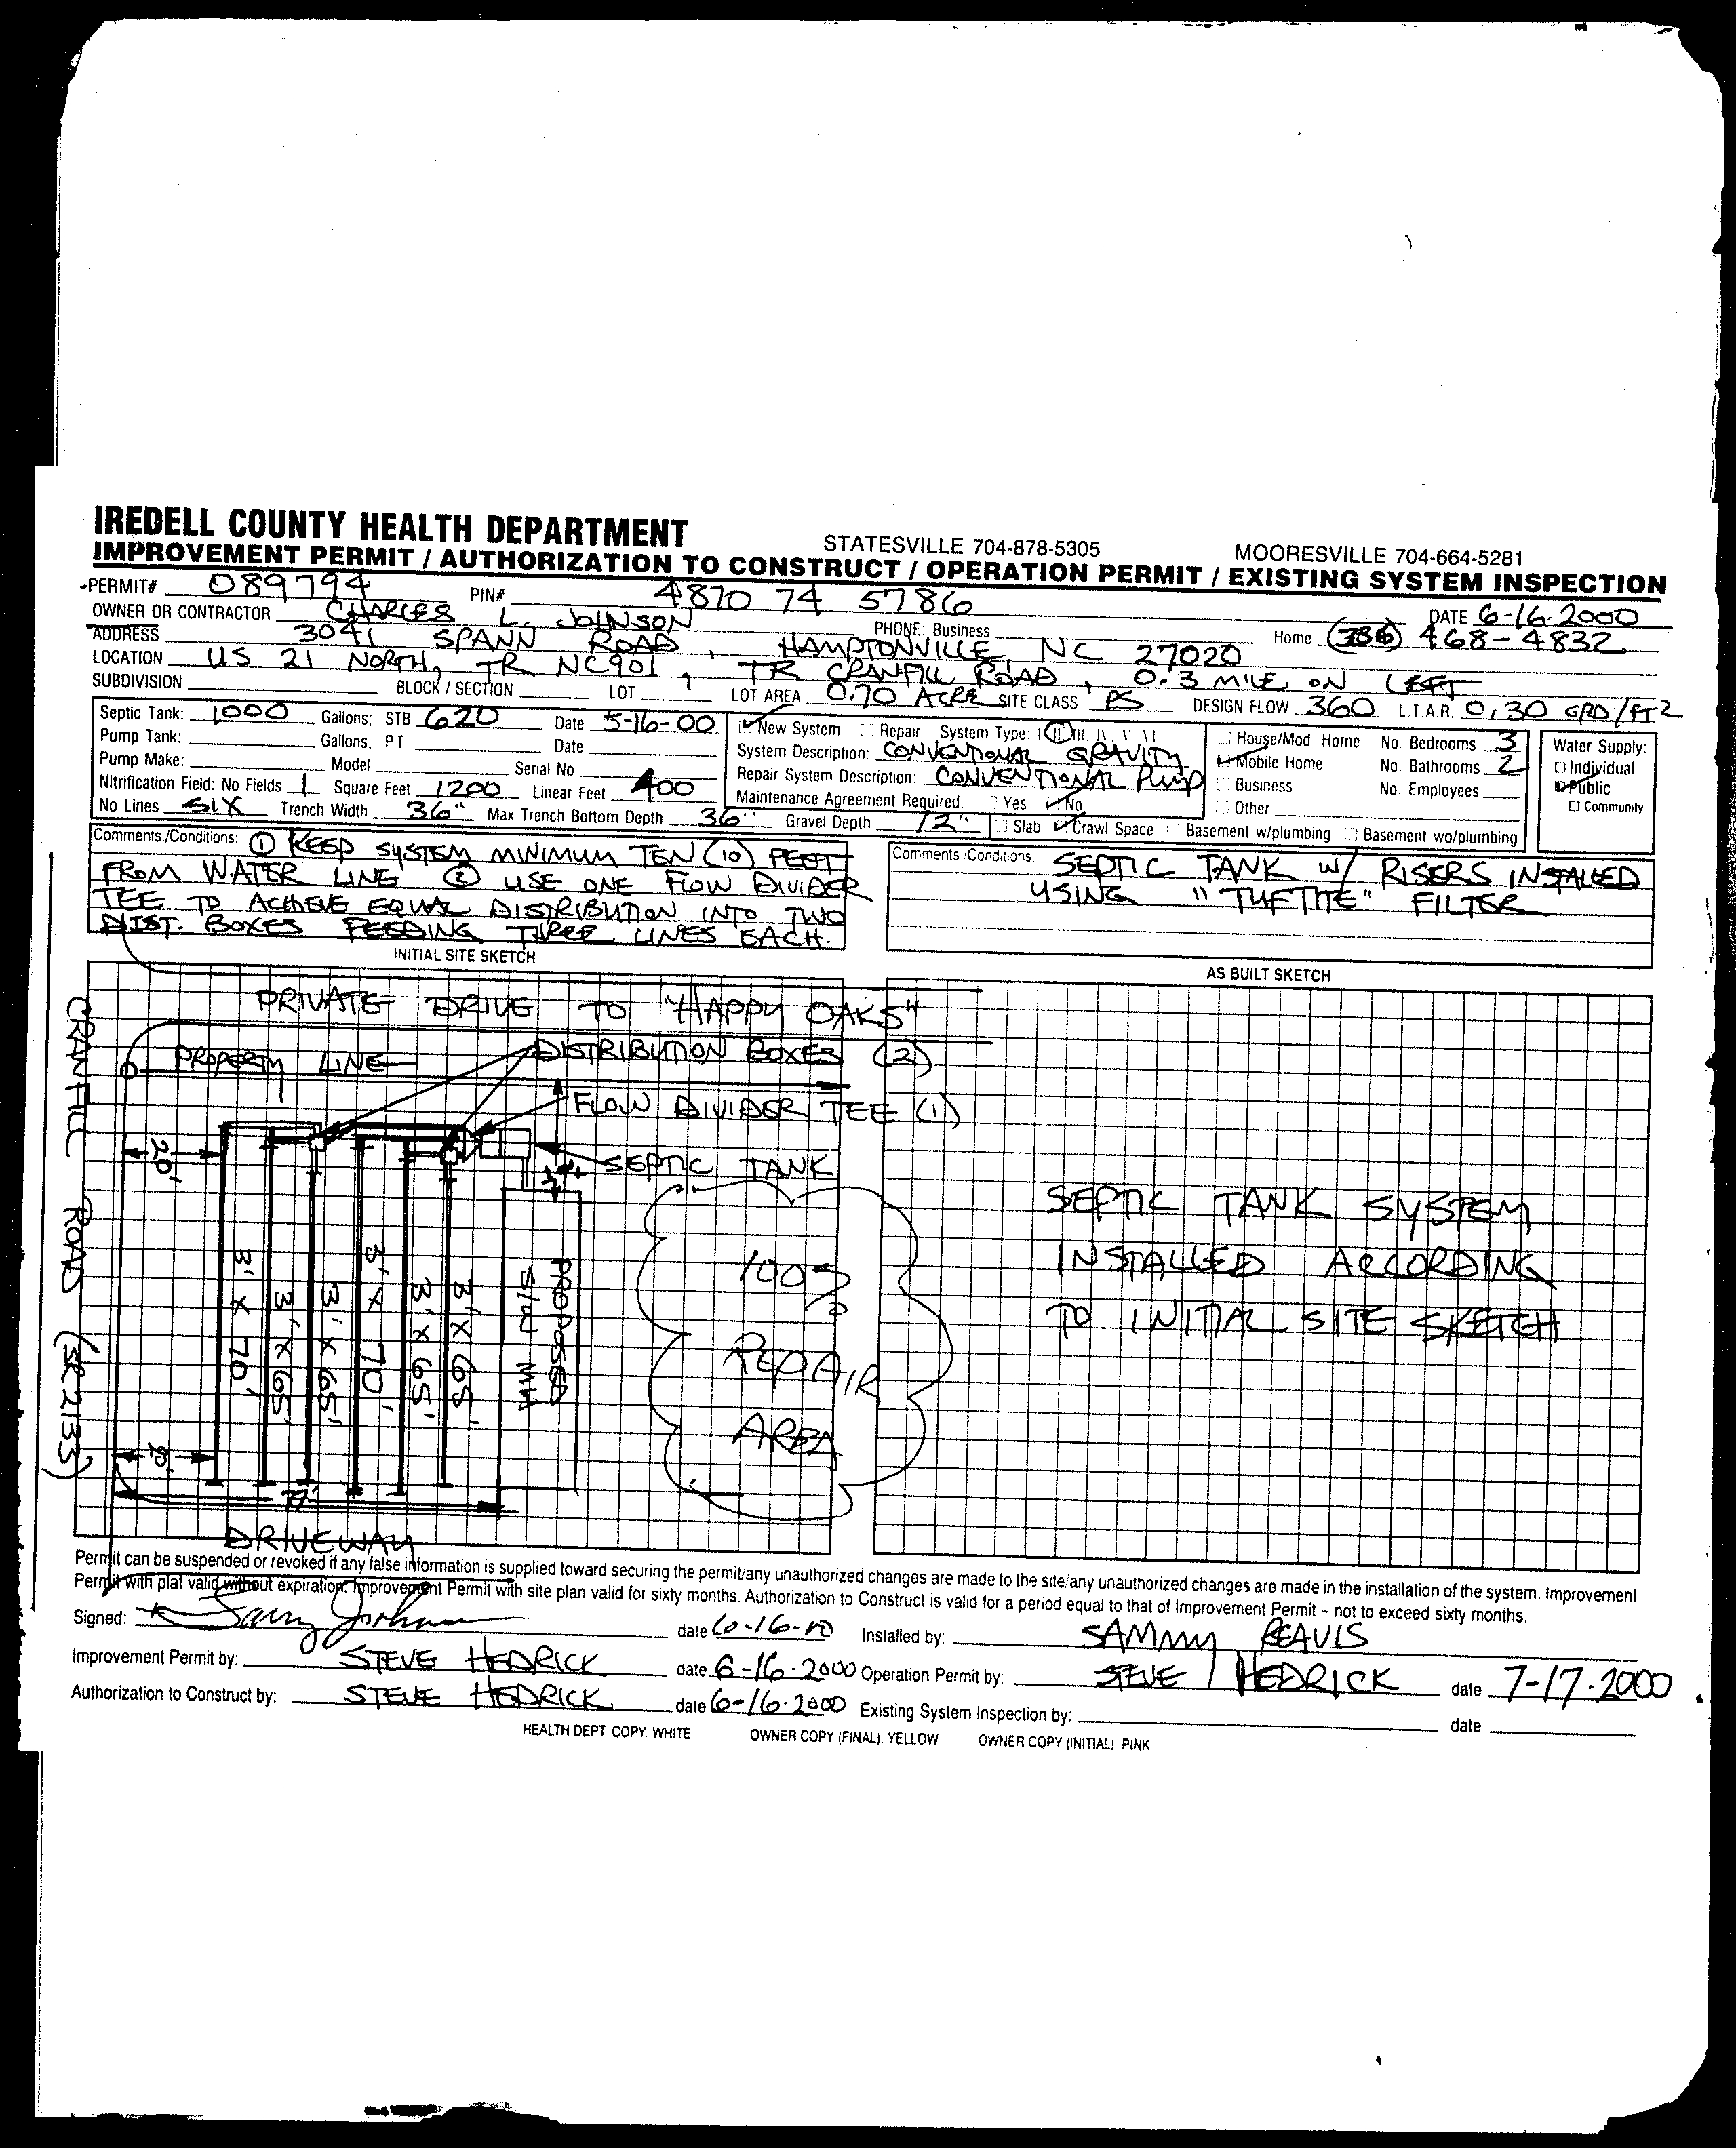 IREDELL COUNTY HEALTH DEPARTMENT STATESVILLE 704-878-5305 MOORESVILLE 704-664-5281
IMPROVEMENT PERMIT / AUTHORIZATION TO CONSTRUCT / OPERATION PERMIT / EXISTING SYSTEM INSPECTION
PERMIT# 089794 PIN# 4870 74 5786 DATE 6-16-2000
OWNER OR CONTRACTOR CHARLES L. JOHNSON PHONE: Business Home (336) 468-4832
ADDRESS 3041 SPANN ROAD, HAMPTONVILLE, NC 27020
LOCATION US 21 NORTH, TR NC901, TR CRANFILL ROAD, 0.3 MILE ON LEFT
SUBDIVISION BLOCK / SECTION LOT LOT AREA 0.70 ACRE SITE CLASS PS DESIGN FLOW 360 L.T.A.R. 0.30 GPD/FT2
Septic Tank: 1000 Gallons; STB 620 Date 5-16-00
Pump Tank: Gallons; PT Date
Pump Make: Model Serial No
Nitrification Field: No Fields 1 Square Feet 1200 Linear Feet 400
No Lines SIX Trench Width 36" Max Trench Bottom Depth 36" Gravel Depth 12"
New System Repair System Type: I II III IV V VI
System Description: CONVENTIONAL GRAVITY
Repair System Description: CONVENTIONAL PUMP
Maintenance Agreement Required. Yes No
Slab Crawl Space Basement w/plumbing Basement wo/plumbing
House/Mod Home No. Bedrooms 3
Mobile Home No. Bathrooms 2
Business No. Employees
Other
Water Supply:
Individual
Public
Community
Comments/Conditions: ① KEEP SYSTEM MINIMUM TEN (10) FEET
FROM WATER LINE ② USE ONE FLOW DIVIDER
TEE TO ACHIEVE EQUAL DISTRIBUTION INTO TWO
DIST. BOXES FEEDING THREE LINES EACH.
Comments/Conditions: SEPTIC TANK W/ RISERS INSTALLED
USING "TUFTITE" FILTER
INITIAL SITE SKETCH
PRIVATE DRIVE TO "HAPPY OAKS"
PROPERTY LINE
DISTRIBUTION BOXES (2)
FLOW DIVIDER TEE (1)
SEPTIC TANK
CRANFILL ROAD (SR 2133)
20'
3' X 70'
3' X 65'
3' X 65'
3' X 70'
3' X 65'
3' X 65'
PROPOSED
S/W MH
100%
REPAIR
AREA
20'
77'
DRIVEWAY
AS BUILT SKETCH
SEPTIC TANK SYSTEM
INSTALLED ACCORDING
TO INITIAL SITE SKETCH
Permit can be suspended or revoked if any false information is supplied toward securing the permit/any unauthorized changes are made to the site/any unauthorized changes are made in the installation of the system. Improvement
Permit with plat valid without expiration. Improvement Permit with site plan valid for sixty months. Authorization to Construct is valid for a period equal to that of Improvement Permit – not to exceed sixty months.
Signed: Johnson date 6-16-00 Installed by: SAMMY REAVIS
Improvement Permit by: STEVE HEDRICK date 6-16-2000 Operation Permit by: STEVE HEDRICK date 7-17-2000
Authorization to Construct by: STEVE HEDRICK date 6-16-2000 Existing System Inspection by: date
HEALTH DEPT. COPY: WHITE OWNER COPY (FINAL): YELLOW OWNER COPY (INITIAL): PINK